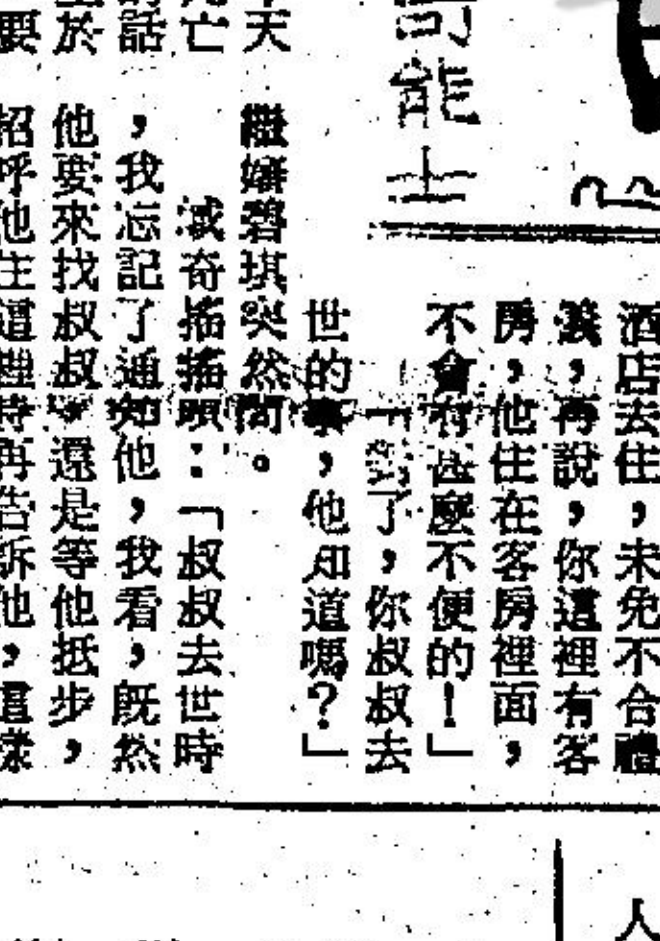 酒店去住，未免不合禮
義，再說，你這裡有客
房，他住在客房裡面，
不會有甚麼不便的！」
「 了，你叔叔去
世的事，他知道嗎？」
繼嬸碧琪突然問。
滅奇搖搖頭：「叔叔去世時
，我忘記了通知他，我看，既然
他要來找叔叔， 還是等他抵步，
招呼他住這裡時再告訴他，這樣
能士
天
亡
話
於
要
人